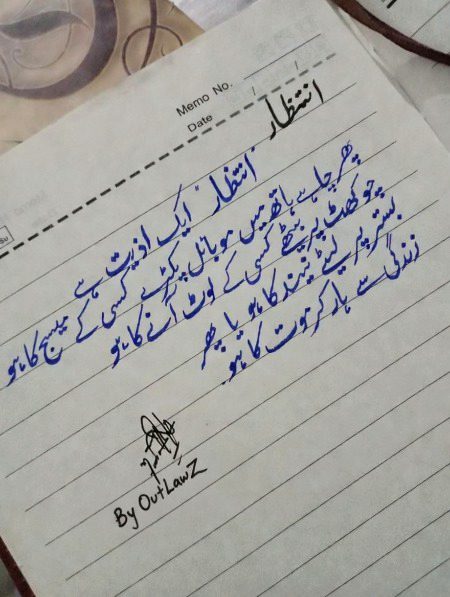 Memo No.
Date / /
انتظار
"انتظار" ایک اذیت ہے
پھر چاہے ہاتھ میں موبائل پکڑے کسی کے میسج کا ہو
چوکھٹ پر بیٹھے کسی کے لوٹ آنے کا ہو
بستر پر لیٹے نیند کا ہو یا پھر
زندگی سے ہار کر موت کا ہو۔
By OutLawZ